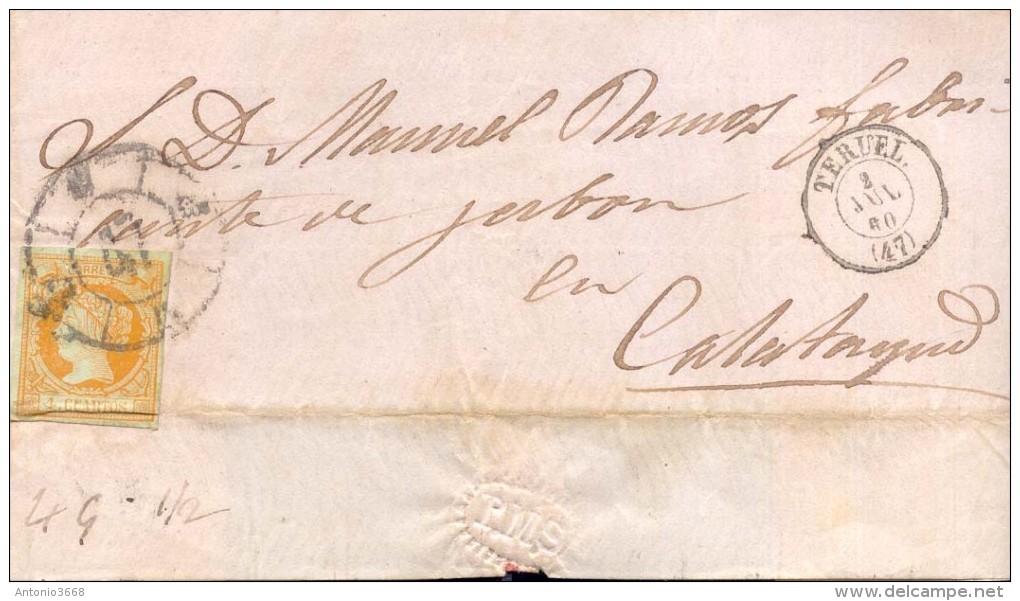 S. D. Manuel Ramos fabri-
cante de jabon
en
Calatayud
TERUEL.
2
JUL
60
(47)
CORREOS
4 CUARTOS
4 G 1/2
PMS
Antonio3668
delcampe.net